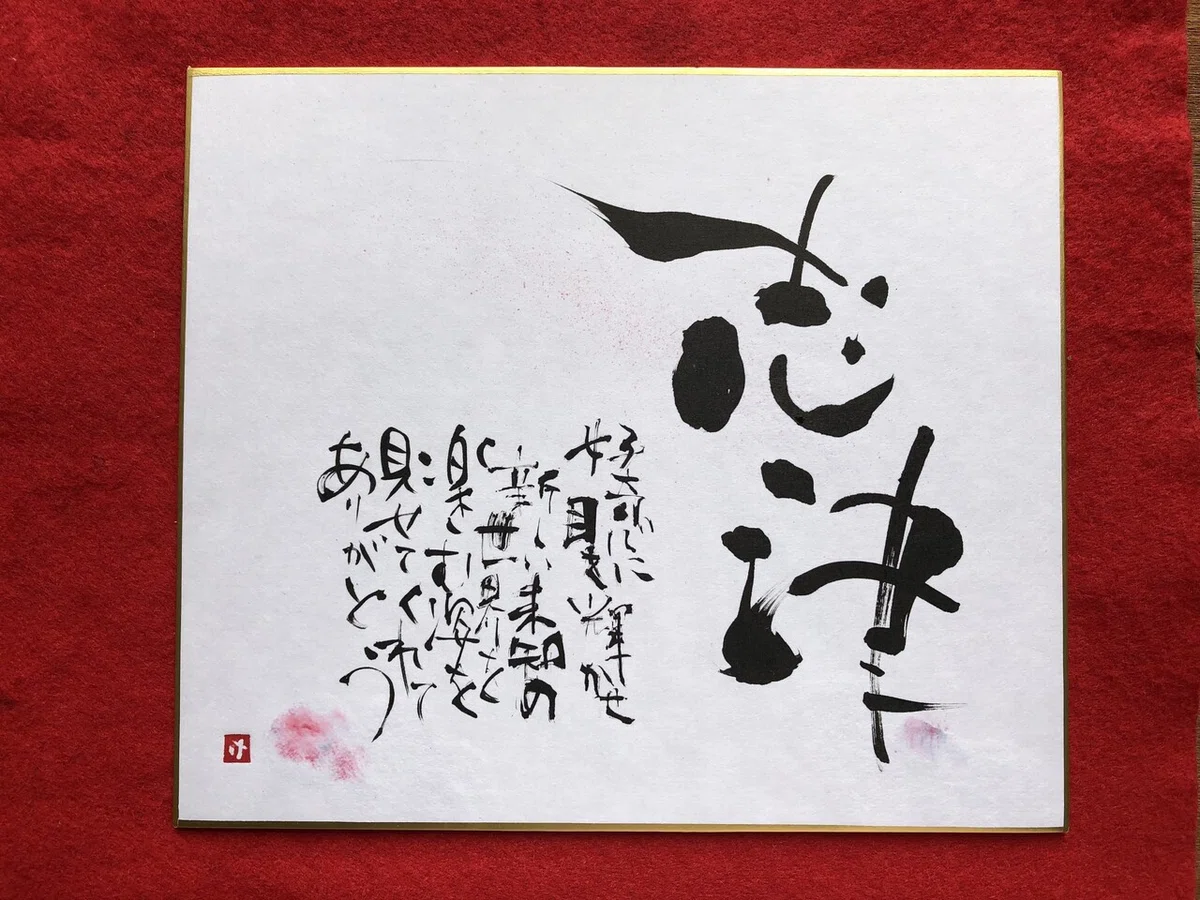 志津
好奇心に
目を輝かせ
新しい未知の
世界を
楽しむ姿を
見せてくれて
ありがとう
け